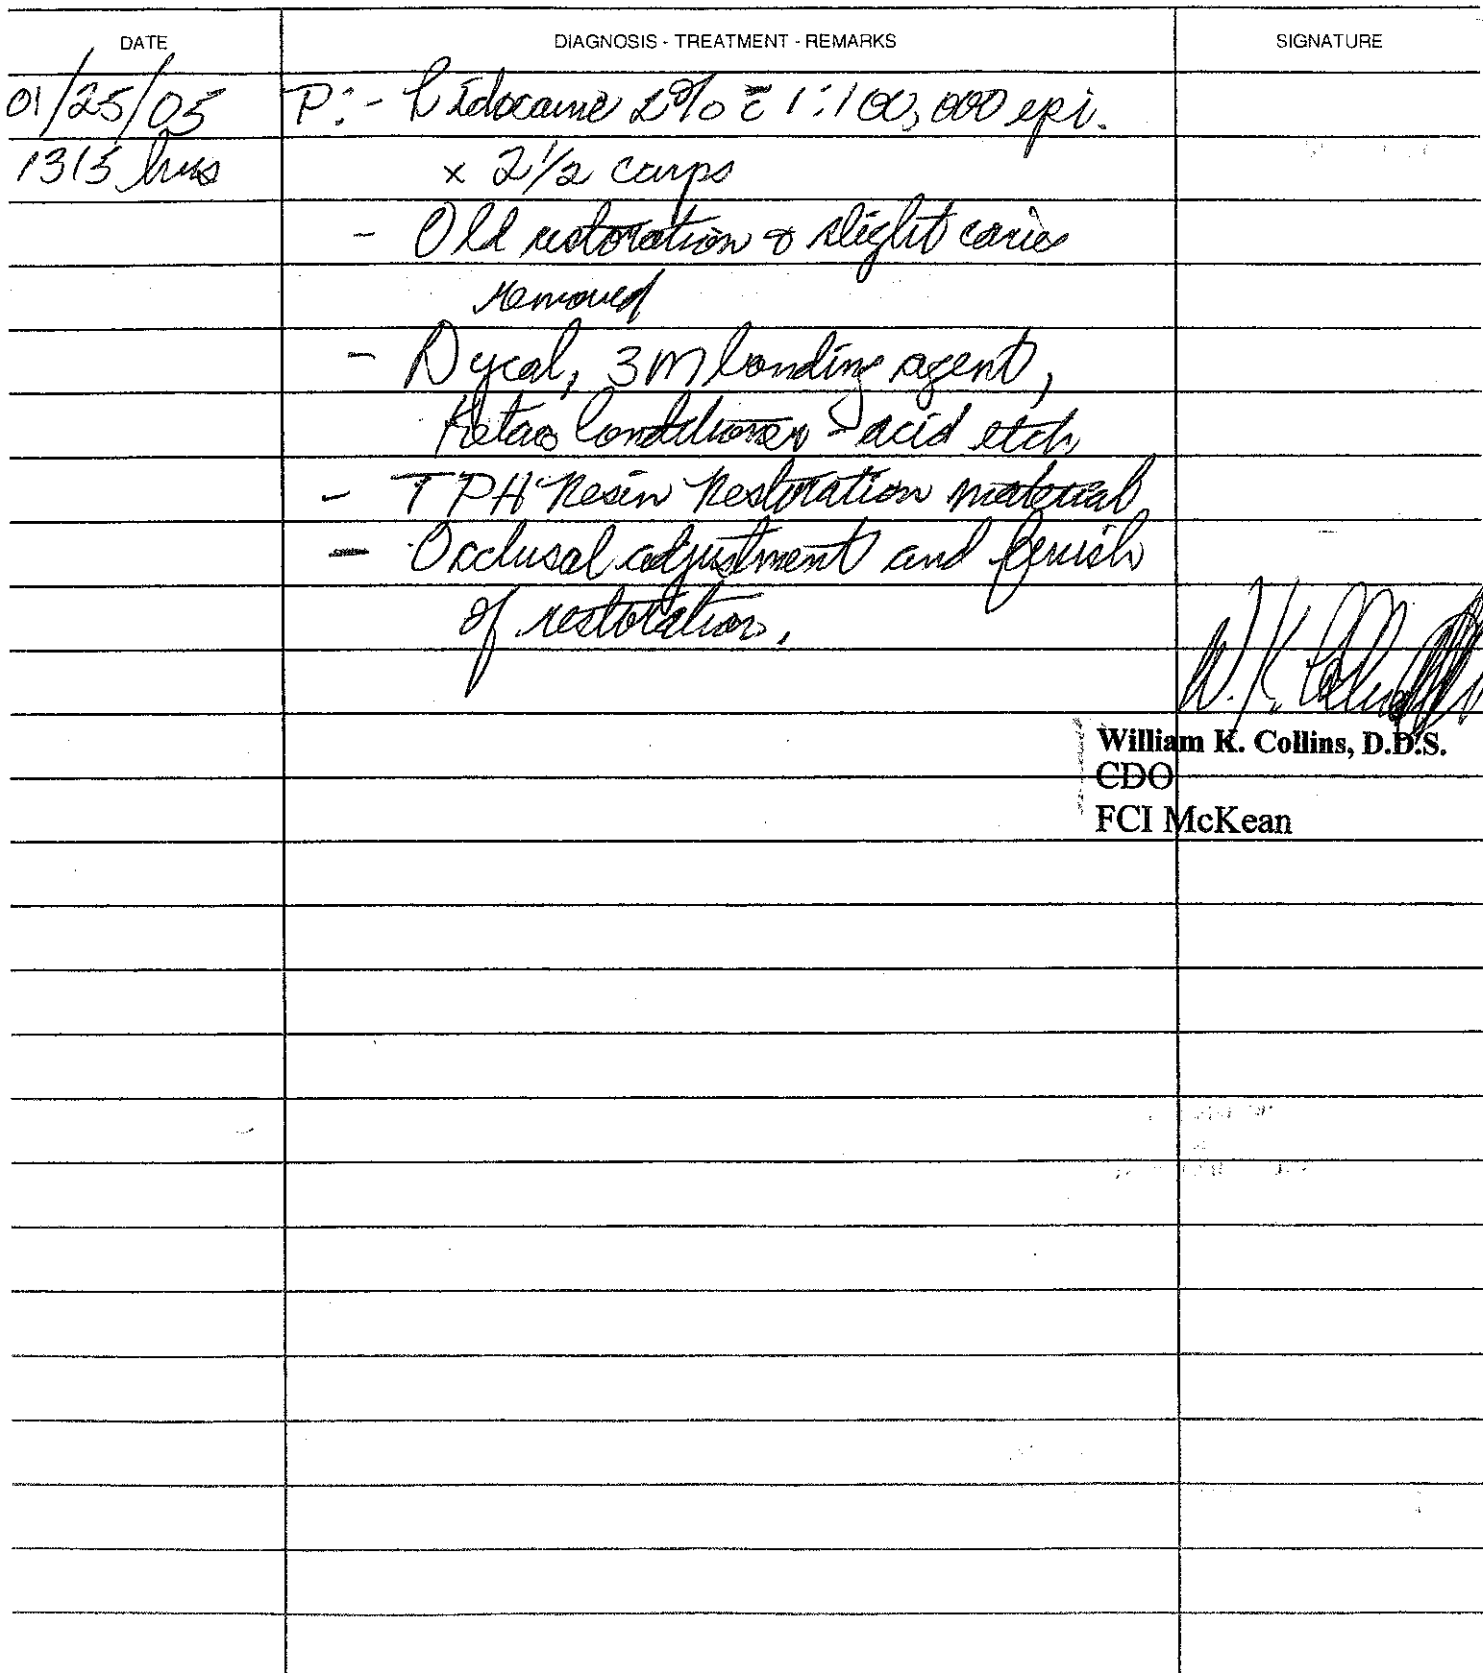 DATE DIAGNOSIS - TREATMENT - REMARKS SIGNATURE
01/25/05 P: - Lidocaine 2% c̄ 1:100,000 epi.
1315 hrs x 2 1/2 carps
- Old restoration & slight caries
removed
- Dycal, 3M bonding agent,
Ketac Conditioner - acid etch
- TPH Resin Restoration material
- Occlusal adjustment and finish
of restoration.
W. K. Collins
William K. Collins, D.D.S.
CDO
FCI McKean